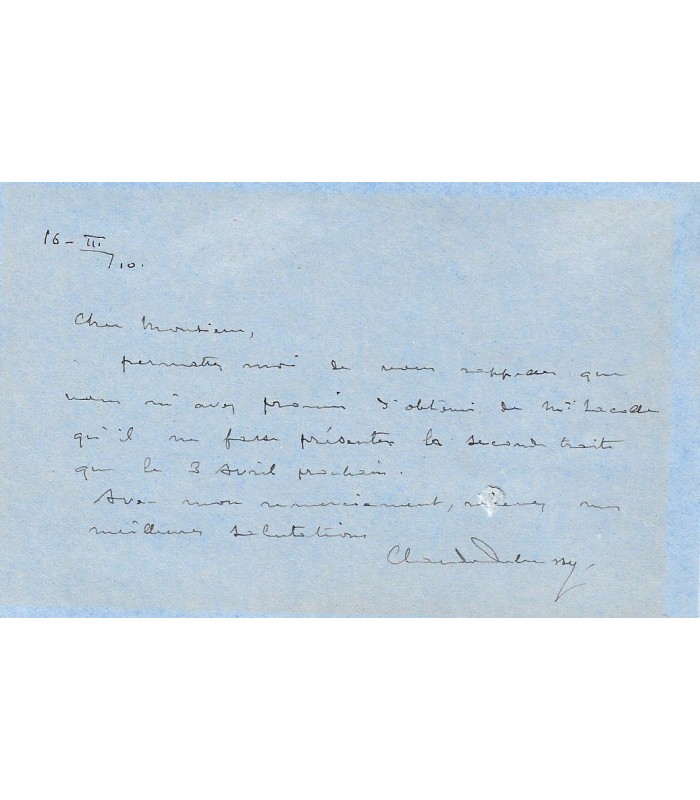 16 - III
/10.
Cher Monsieur,
permettez moi de vous rappeler que
vous m'avez promis d'obtenir de Mr
qu'il ne fasse présenter la seconde traite
que le 3 Avril prochain.
Avec mon remerciement, recevez mes
meilleures salutations
Claude Debussy.